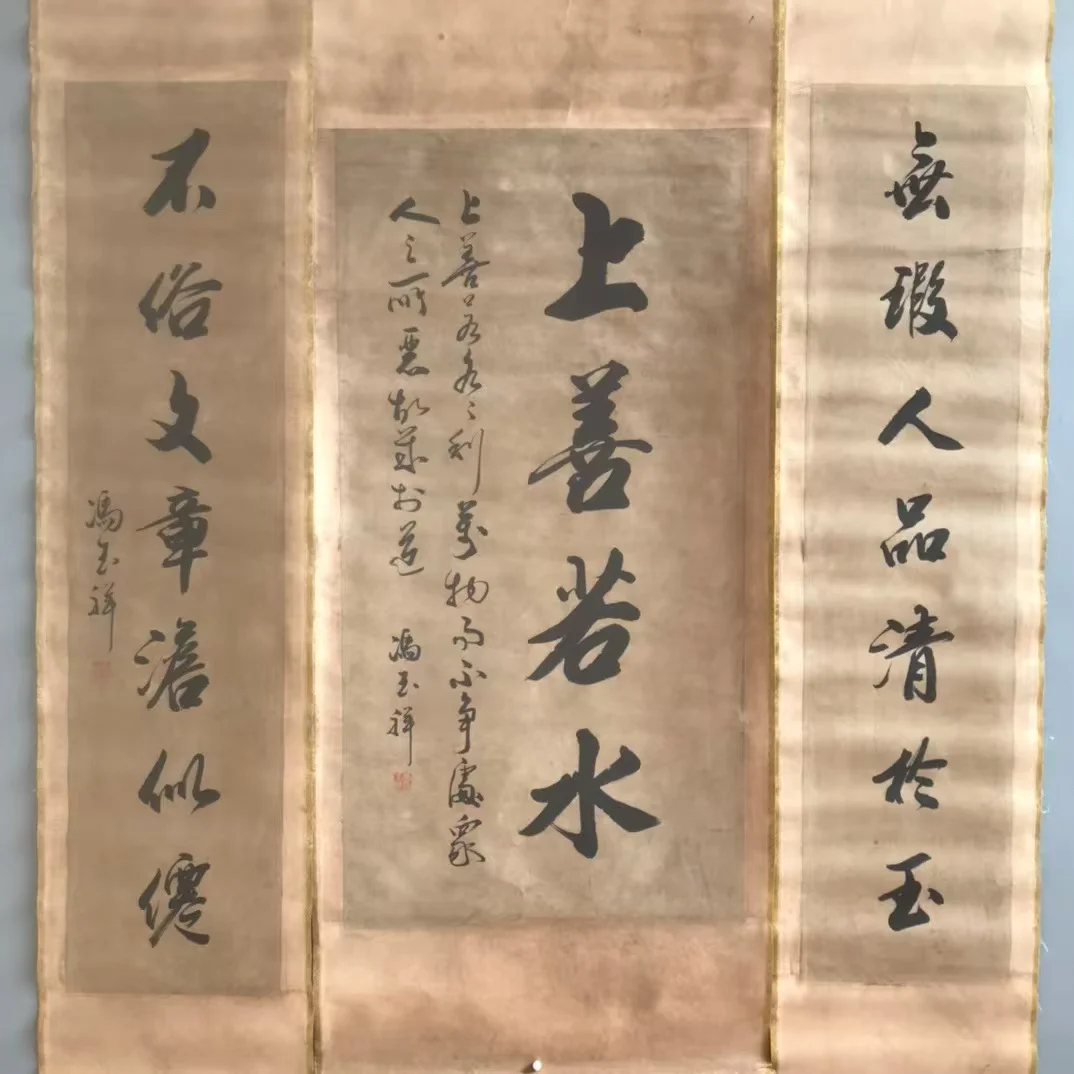 無瑕人品清於玉
上善若水
上善若水〻利萬物而不争處眾
人之所惡故幾於道 馮玉祥
不俗文章澹似僊
馮玉祥